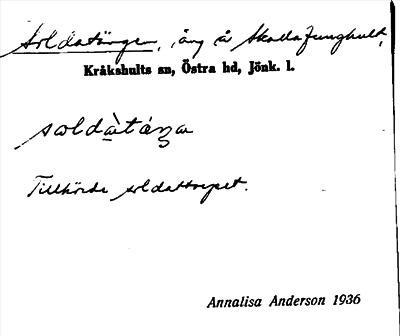 Soldatängen, äng å Skoda Ljunghult,
Kråkshults sn, Östra hd, Jönk. l.
soldàtáŋa
Tillhörde soldattorpet.
Annalisa Anderson 1936